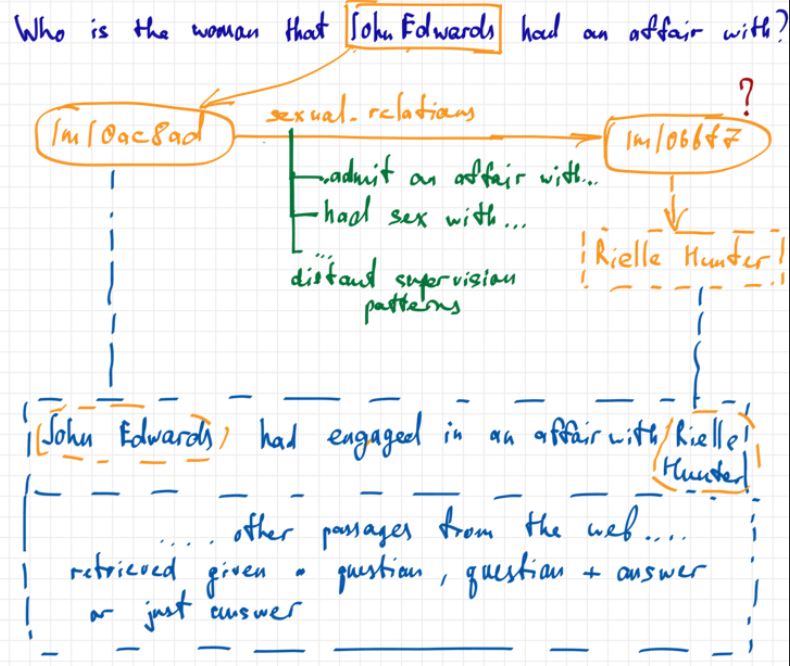 Who is the woman that John Edwards had an affair with?
?
sexual.relations
/m/0ac8ad
/m/066ff7
admit an affair with...
had sex with...
...
Rielle Hunter
distant supervision
patterns
John Edwards had engaged in an affair with Rielle
Hunter
..... other passages from the web....
retrieved given a question, question + answer
or just answer